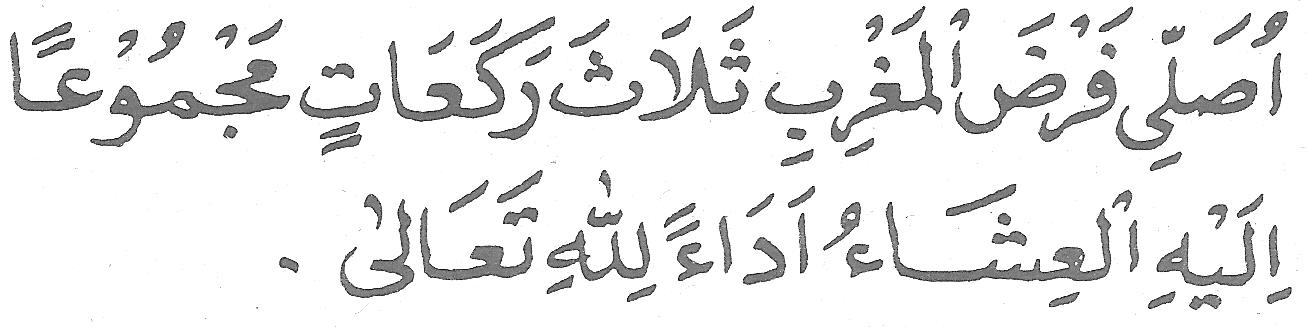 اُصَلِّى فَرْضَ الْمَغْرِبِ ثَلَاثَ رَكَعَاتٍ مَجْمُوْعًا
اِلَيْهِ الْعِشَاءُ اَدَاءً لِلّٰهِ تَعَالىٰ .